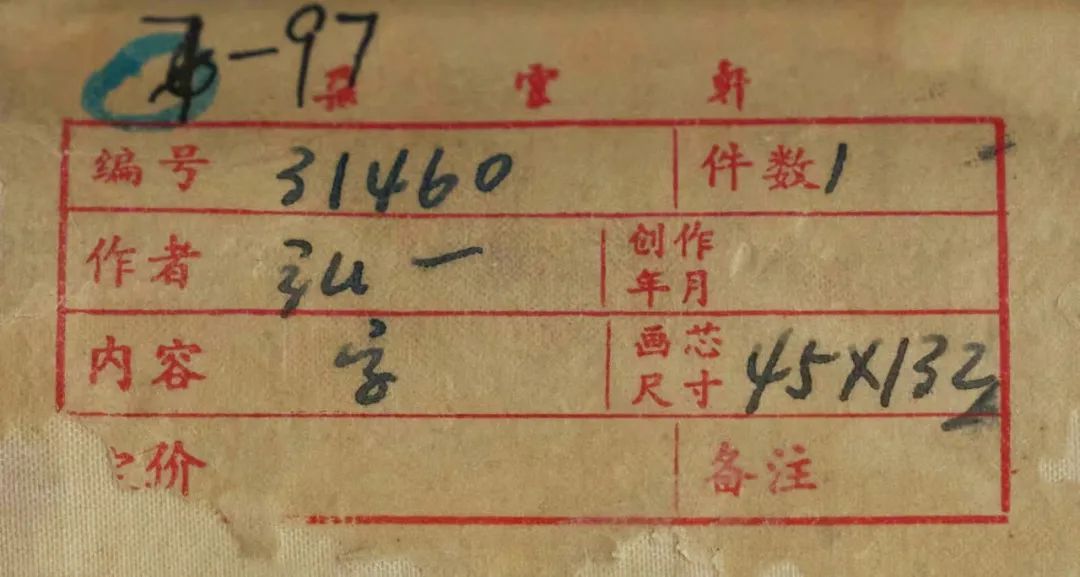 -97
朵雲軒
编号 31460 件数 1
作者 弘一 创作年月
内容 字 画芯尺寸 45×132
价 备注